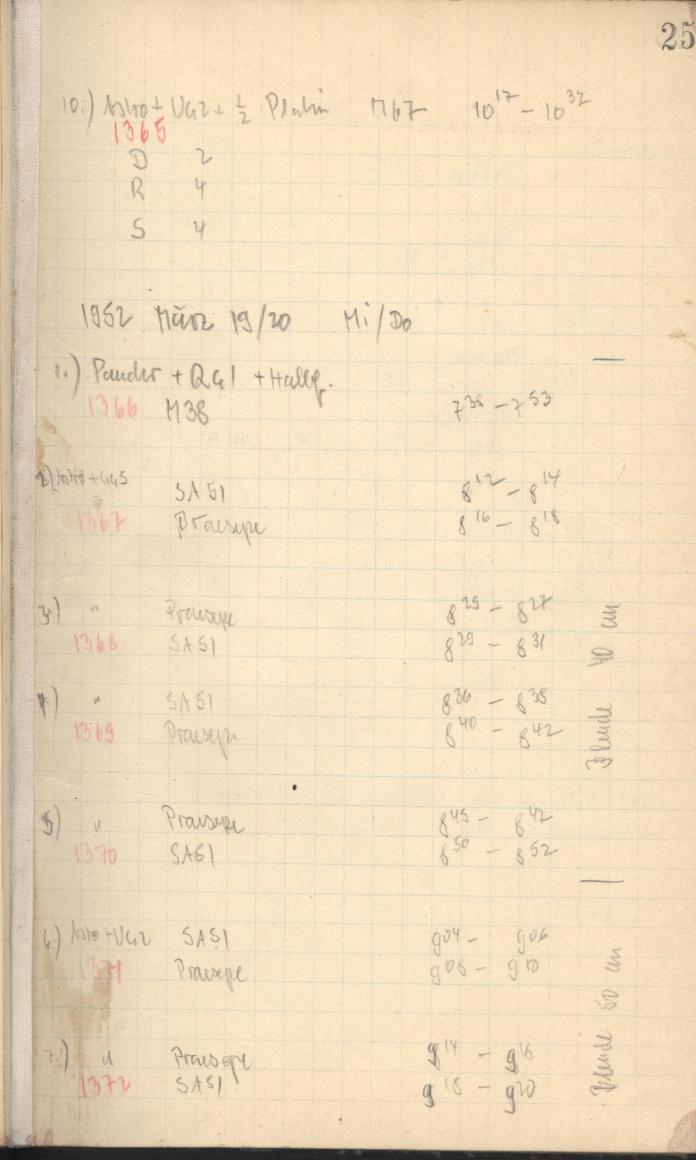 25
10.) Astro + UG2 + ½ Platin M67 10¹⁷ – 10³²
1365
D 2
R 4
S 4
1952 März 19/20 Mi/Do
1.) Pander + RG1 + Halbf.
1366 M38 7³⁵ – 7⁵³
2.) Astro + GG5 SA51 8¹² – 8¹⁴
1367 Praesepe 8¹⁶ – 8¹⁸
3.) " Praesepe 8²⁵ – 8²⁷
1368 SA51 8²⁹ – 8³¹
4.) " SA51 8³⁶ – 8³⁸
1369 Praesepe 8⁴⁰ – 8⁴²
Blende 40 cm
5) " Praesepe 8⁴⁵ – 8⁴⁷
1370 SA51 8⁵⁰ – 8⁵²
6.) Astro + UG2 SA51 9⁰⁴ – 9⁰⁶
1371 Praesepe 9⁰⁸ – 9¹⁰
7.) " Praesepe 9¹⁴ – 9¹⁶
1372 SA51 9¹⁸ – 9²⁰
Blende 50 cm